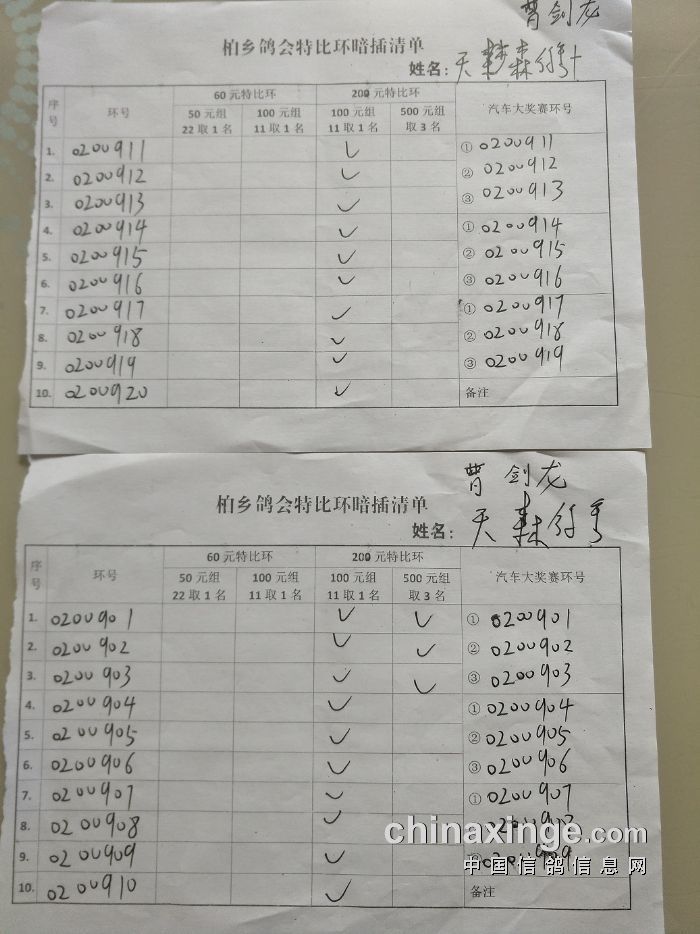 曹剑龙
柏乡鸽会特比环暗插清单
姓名：天 森
序号 环号 60元特比环 200元特比环 汽车大奖赛环号
50元组 22取1名 100元组 11取1名 100元组 11取1名 500元组 取3名
1. 0200911 ✓ ① 0200911
2. 0200912 ✓ ② 0200912
3. 0200913 ✓ ③ 0200913
4. 0200914 ✓ ① 0200914
5. 0200915 ✓ ② 0200915
6. 0200916 ✓ ③ 0200916
7. 0200917 ✓ ① 0200917
8. 0200918 ✓ ② 0200918
9. 0200919 ✓ ③ 0200919
10. 0200920 ✓ 备注
曹剑龙
柏乡鸽会特比环暗插清单
姓名：天
序号 环号 60元特比环 200元特比环 汽车大奖赛环号
50元组 22取1名 100元组 11取1名 100元组 11取1名 500元组 取3名
1. 0200901 ✓ ✓ ① 0200901
2. 0200902 ✓ ✓ ② 0200902
3. 0200903 ✓ ✓ ③ 0200903
4. 0200904 ✓ ① 0200904
5. 0200905 ✓ ② 0200905
6. 0200906 ✓ ③ 0200906
7. 0200907 ✓ ① 0200907
8. 0200908 ✓
chinaxinge.com
9. 0200909 ✓
中国信鸽信息网
10. 0200910 ✓ 备注